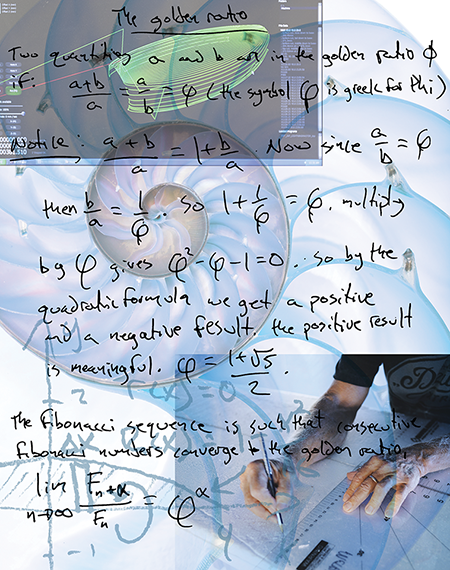 The golden ratio
Two quantities a and b are in the golden ratio ϕ
if: (a+b)/a = a/b = φ (the symbol φ is greek for Phi)
Notice: (a+b)/a = 1 + b/a. Now since a/b = φ
then b/a = 1/φ. so 1 + 1/φ = φ. multiply
by φ gives φ² - φ - 1 = 0. so by the
quadratic formula we get a positive
and a negative result. the positive result
is meaningful. φ = (1+√5)/2.
The fibonacci sequence is such that consecutive
fibonacci numbers converge to the golden ratio.
lim n→∞ Fn+α/Fn = φ^α